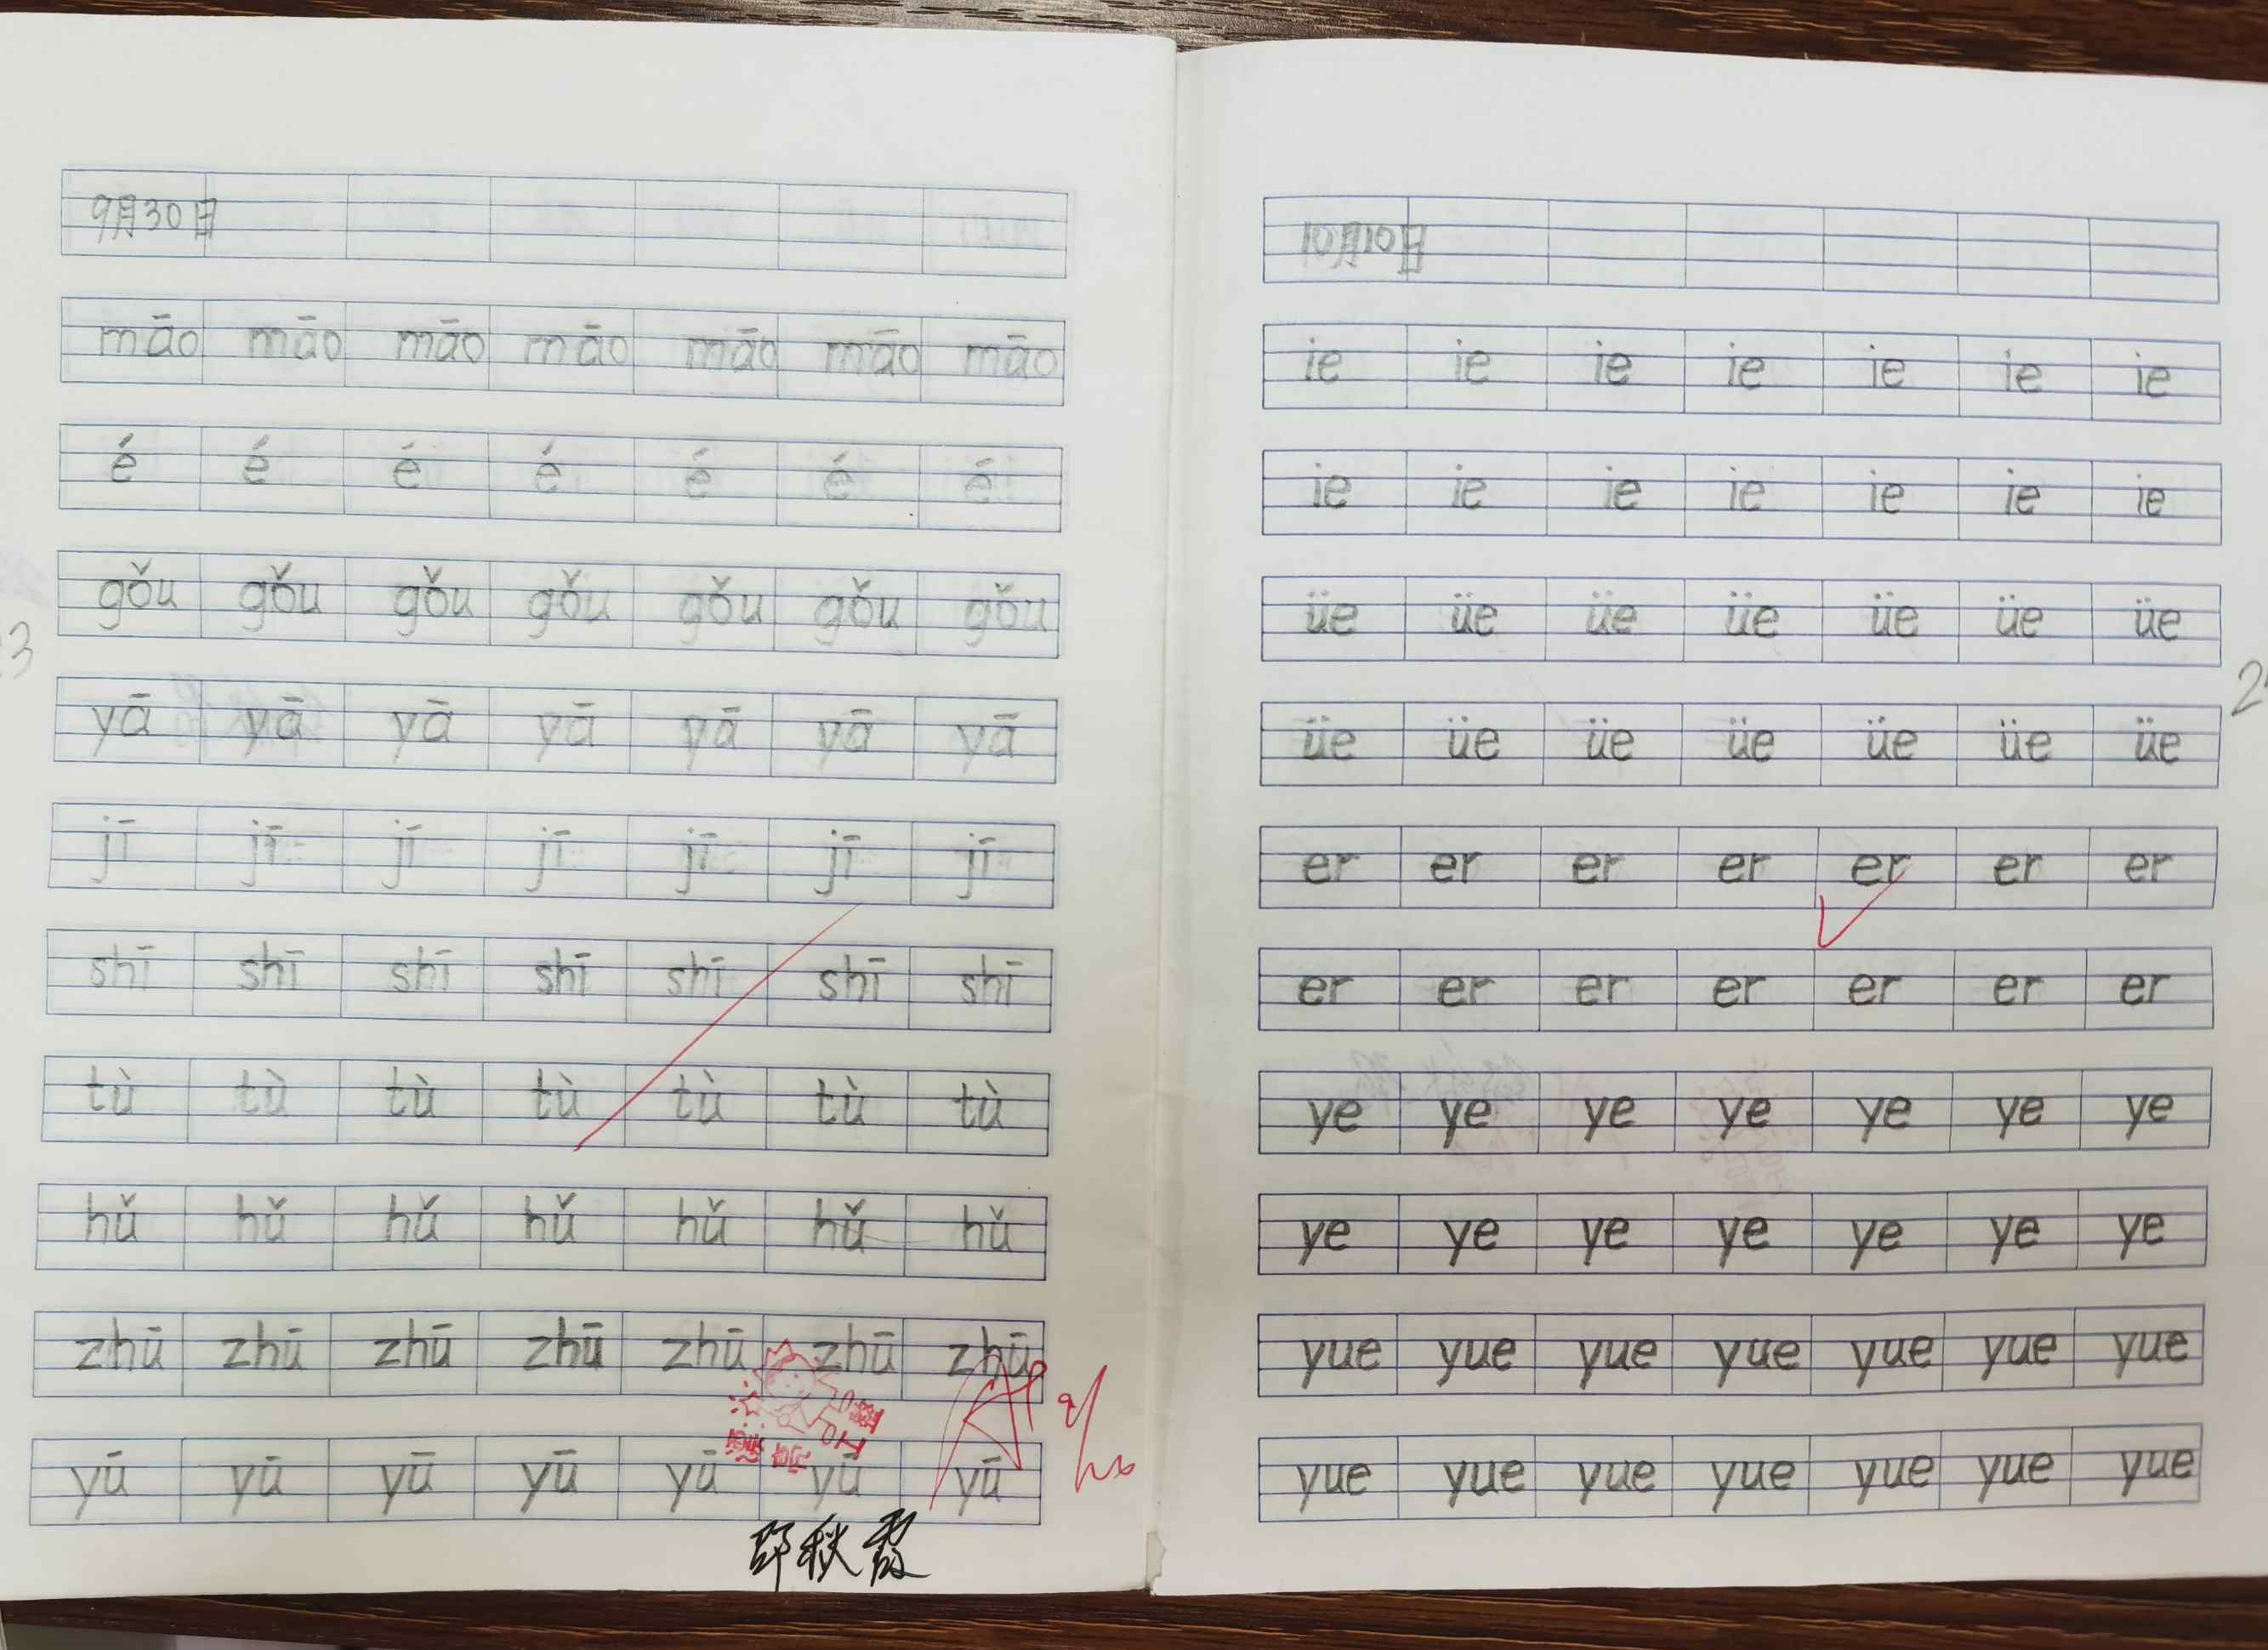 9月30日
māo māo māo māo māo māo māo
é é é é é é é
gǒu gǒu gǒu gǒu gǒu gǒu gǒu
yā yā yā yā yā yā yā
jī jī jī jī jī jī jī
shī shī shī shī shī shī shī
tù tù tù tù tù tù tù
hǔ hǔ hǔ hǔ hǔ hǔ hǔ
zhū zhū zhū zhū zhū zhū zhū
yú yū yū yū yú yū yū
秋霞
10月10日
ie ie ie ie ie ie ie
ie ie ie ie ie ie ie
üe üe üe üe üe üe üe
üe üe üe üe üe üe üe
er er er er er er er
er er er er er er er
ye ye ye ye ye ye ye
ye ye ye ye ye ye ye
yue yue yue yue yue yue yue
yue yue yue yue yue yue yue